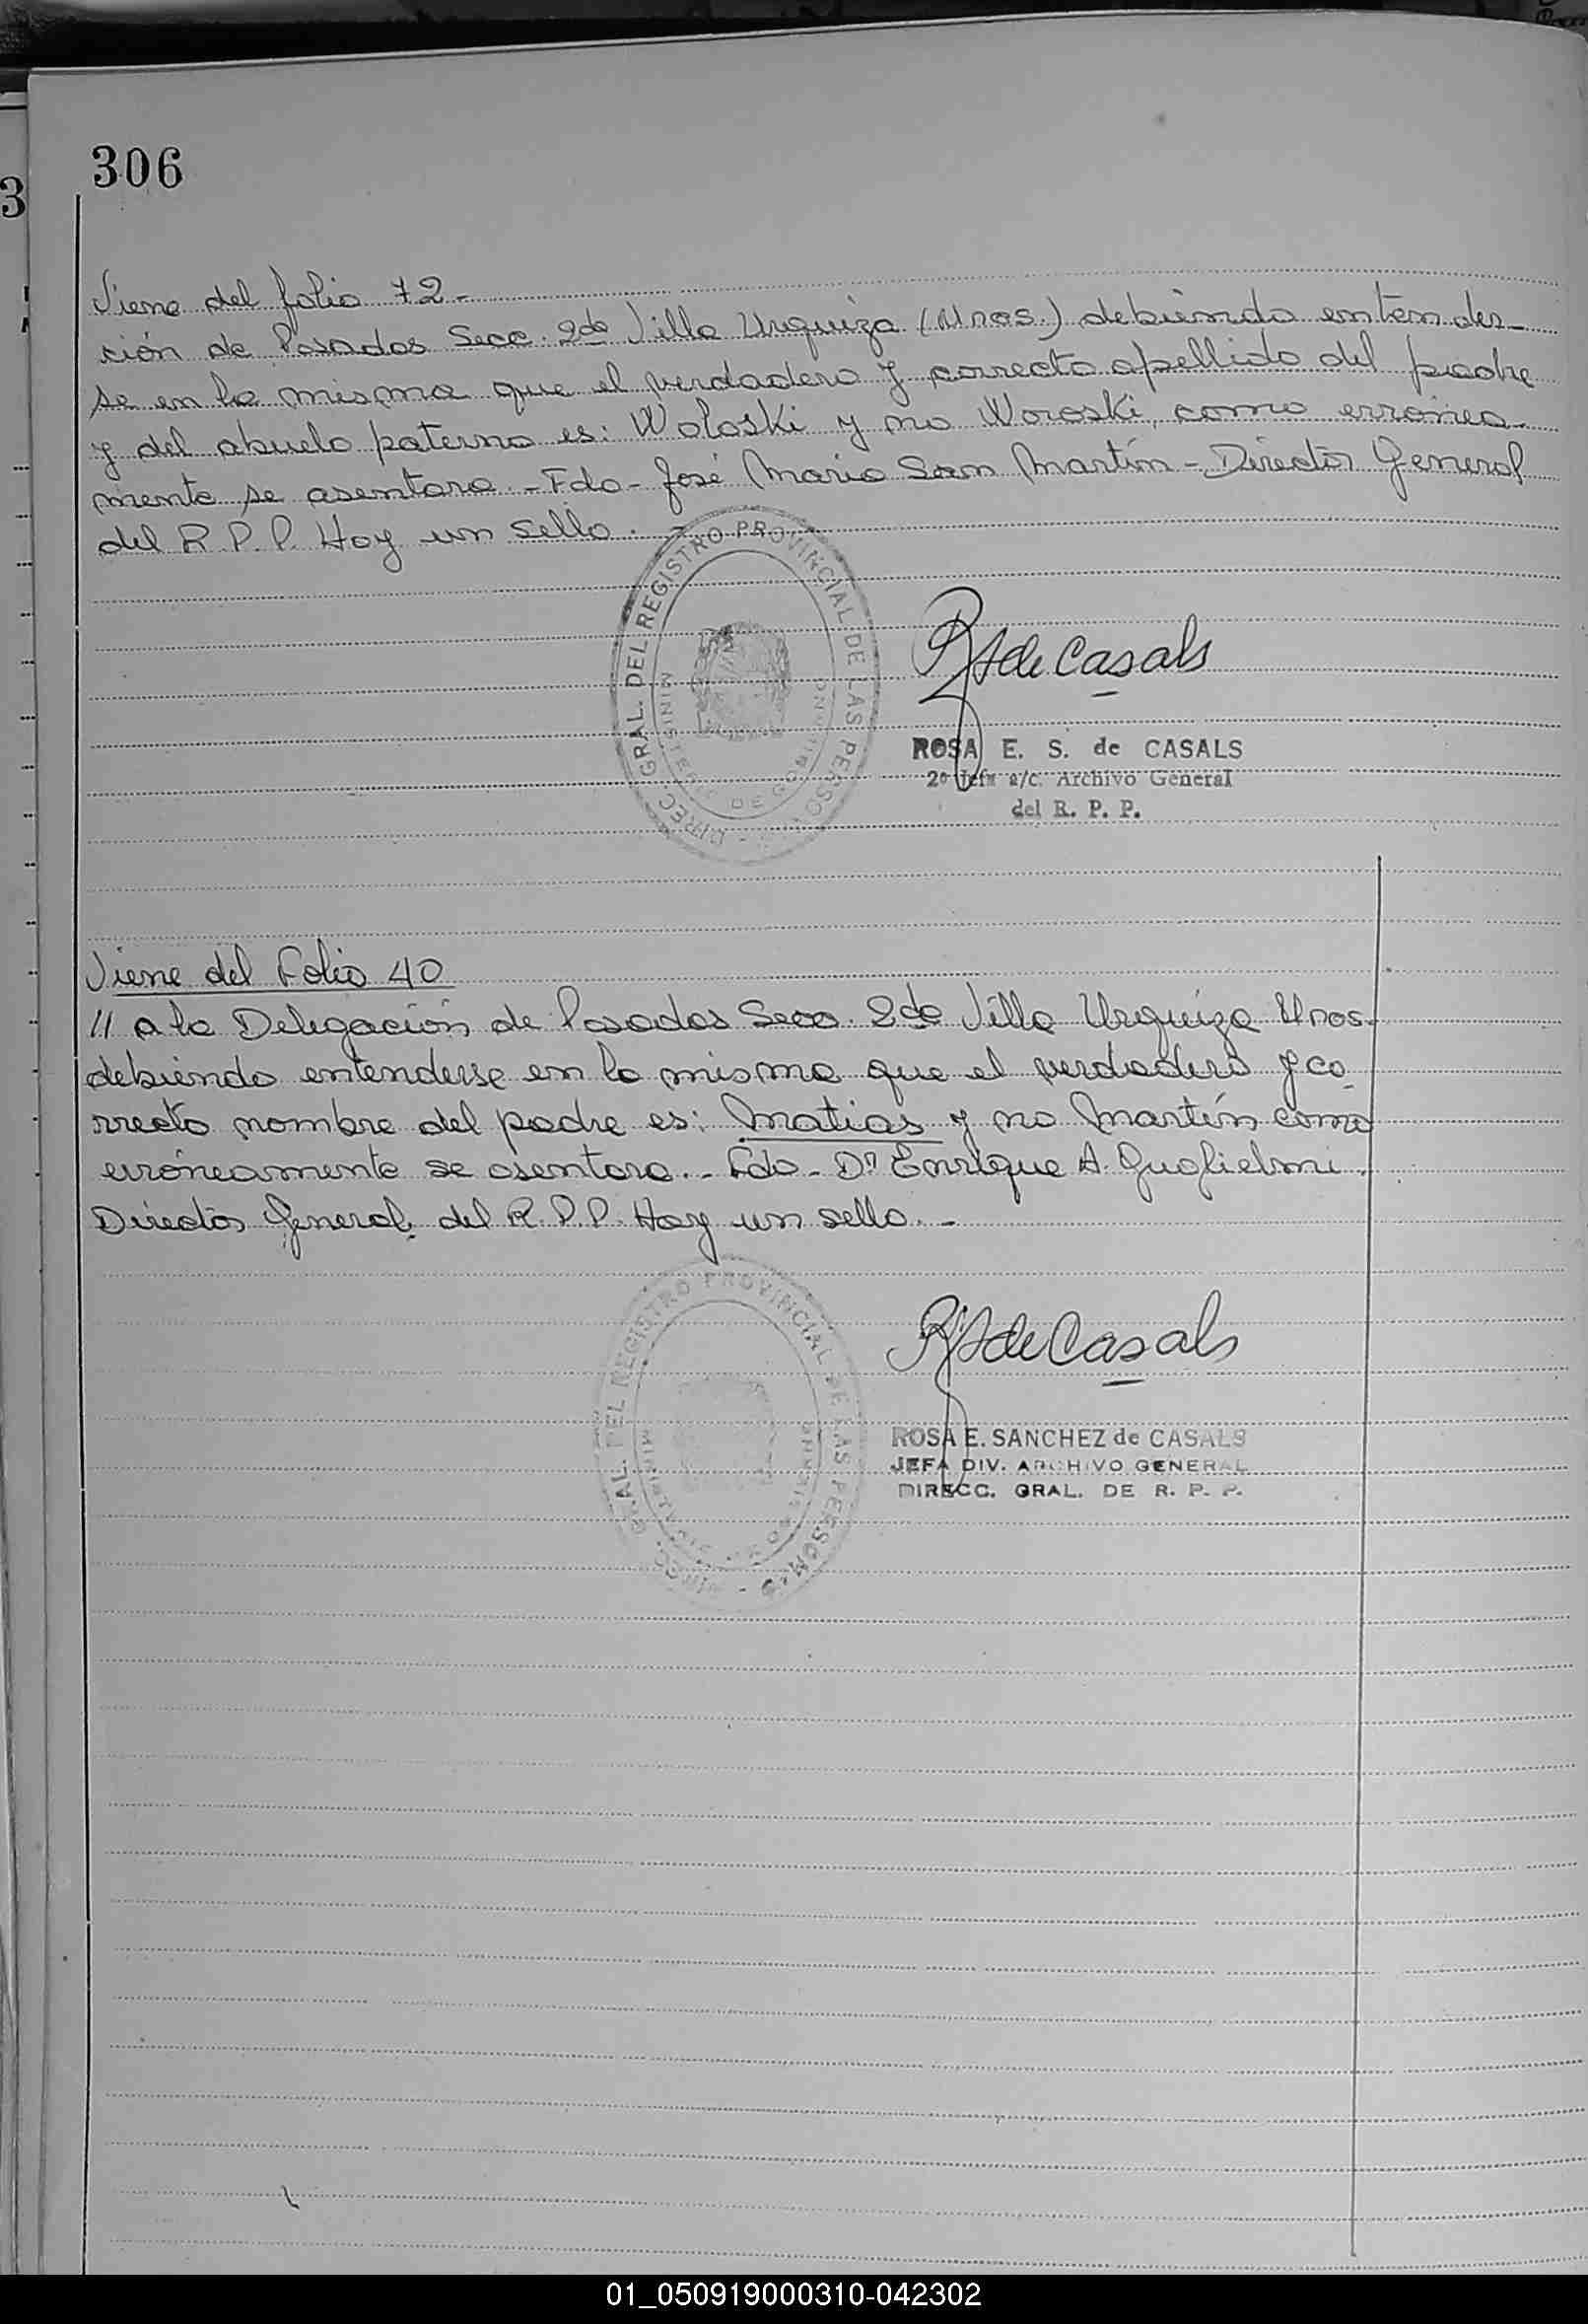 306
3
Viene del folio 72-
ción de Posadas Secc. 2da Villa Urquiza (Mnes.) debiendo entender-
se en la misma que el verdadero y correcto apellido del padre
y del abuelo paterno es: Woloski y no Woroski, como erronea-
mente se asentara.-Fdo-José Maria San Martín-Director General
del R.P.P. Hay un sello.
DIREC. GRAL. DEL REGISTRO PROVINCIAL DE LAS PERSO
MINISTERIO DE GOBIERNO
RS de Casals
ROSA E. S. de CASALS
2º Jefa a/c. Archivo General
del R. P. P.
Viene del Folio 40
// a la Delegación de Posadas Secc. 2da Villa Urquiza Mnes.
debiendo entenderse en la misma que el verdadero y co
rrecto nombre del padre es: Matias y no Martín como
erróneamente se asentara.-Fdo-Dn Enrique A. Guglielmi.
Director General del R.P.P. Hay un sello.-
GRAL. DEL REGISTRO PROVINCIAL DE LAS PERSONAS - DIREC.
RS de Casals
ROSA E. SANCHEZ de CASALS
JEFA DIV. ARCHIVO GENERAL
DIRECC. GRAL. DE R. P. P.
01_050919000310-042302